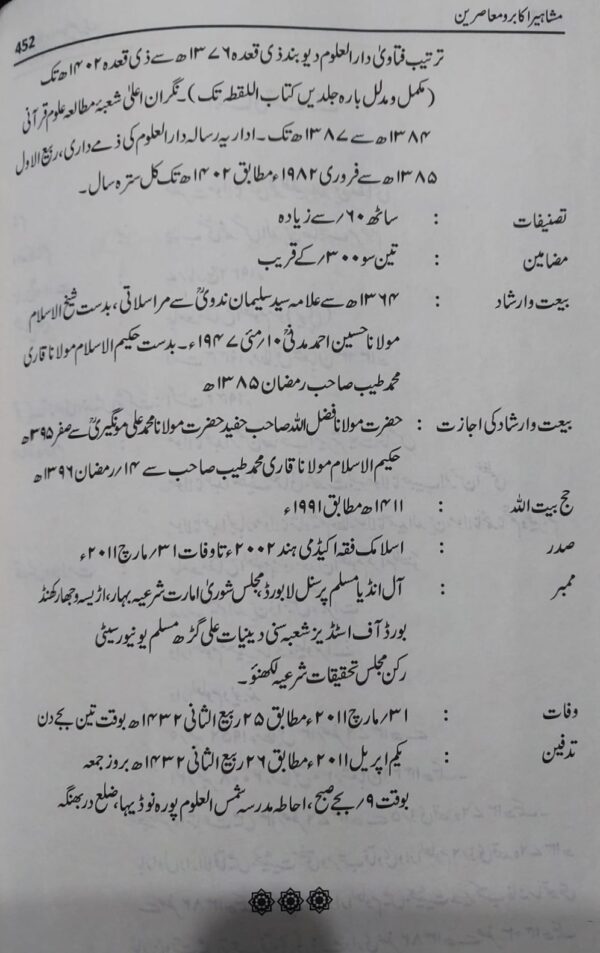 مشاہیر اکابر و معاصرین
452
ترتیب فتاویٰ دارالعلوم دیوبند ذی قعدہ ۱۳۷۶ھ سے ذی قعدہ ۱۴۰۲ھ تک
(مکمل و مدلل بارہ جلدیں کتاب اللقطہ تک)۔ نگران اعلیٰ شعبۂ مطالعہ علوم قرآنی
۱۳۸۴ھ سے ۱۳۸۷ھ تک۔ اداریہ رسالہ دارالعلوم کی ذمے داری، ربیع الاول
۱۳۸۵ھ سے فروری ۱۹۸۲ء مطابق ۱۴۰۲ھ تک کل سترہ سال۔
تصنیفات : ساٹھ ۶۰/ سے زیادہ
مضامین : تین سو ۳۰۰/ کے قریب
بیعت و ارشاد : ۱۳۶۴ھ سے علامہ سید سلیمان ندویؒ سے مراسلاتی، بدست شیخ الاسلام
مولانا حسین احمد مدنیؒ ۱۰/مئی ۱۹۴۷ء۔ بدست حکیم الاسلام مولانا قاری
محمد طیب صاحب رمضان ۱۳۸۵ھ
بیعت و ارشاد کی اجازت : حضرت مولانا فضل اللہ صاحب حفید حضرت مولانا محمد علی مونگیریؒ سے صفر ۳۹۵ھ
حکیم الاسلام مولانا قاری محمد طیب صاحب سے ۱۴/رمضان ۱۳۹۶ھ
حج بیت اللہ : ۱۴۱۱ھ مطابق ۱۹۹۱ء
صدر : اسلامک فقہ اکیڈمی ہند ۲۰۰۲ء تا وفات ۳۱/مارچ ۲۰۱۱ء
ممبر : آل انڈیا مسلم پرسنل لا بورڈ، مجلس شوریٰ امارت شرعیہ بہار، اڑیسہ و جھارکھنڈ
بورڈ آف اسٹڈیز شعبہ سنی دینیات علی گڑھ مسلم یونیورسیٹی
رکن مجلس تحقیقات شرعیہ لکھنؤ۔
وفات : ۳۱/مارچ ۲۰۱۱ء مطابق ۲۵ ربیع الثانی ۱۴۳۲ھ بوقت تین بجے دن
تدفین : یکم اپریل ۲۰۱۱ء مطابق ۲۶ ربیع الثانی ۱۴۳۲ھ بروز جمعہ
بوقت ۹/بجے صبح، احاطہ مدرسہ شمس العلوم پورہ نوڈیہا، ضلع دربھنگہ